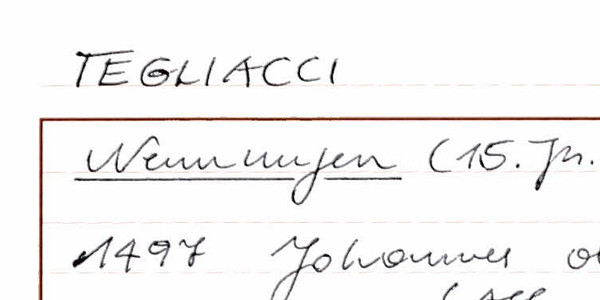 TEGLIACCI
Nennungen (15. Jh.
1497 Johannes